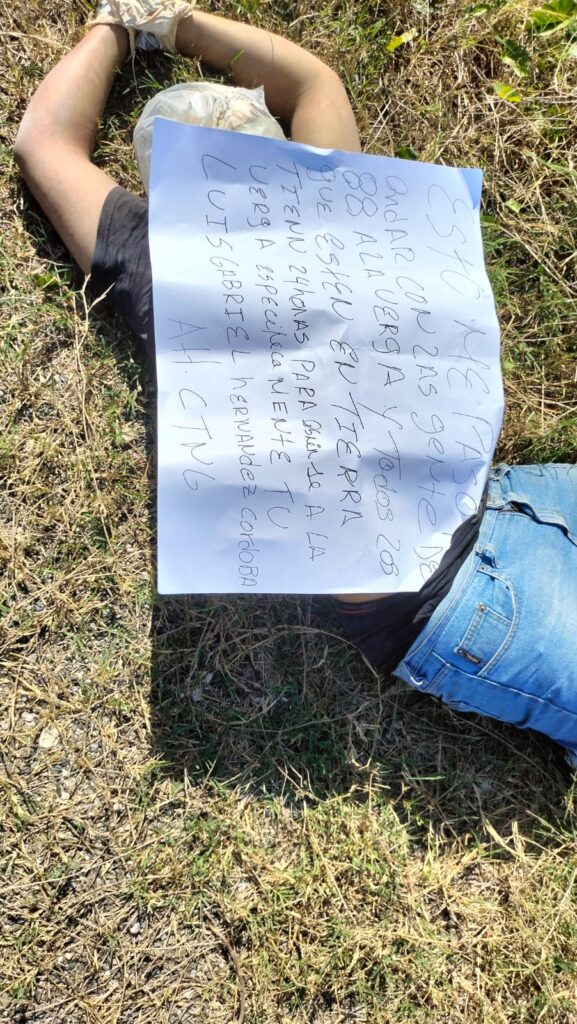 ESTO ME PASO
ANDAR CON LAS gente DE
88 ALA VERGA Y Todos LOS
QUE ESTEN EN TIERRA
TIENN 24HORAS PARA A LA
VERGA ESPECIFICAMENTE TU
LUIS GABRIEL HERNANDEZ CORDOBA
AH. CTNG